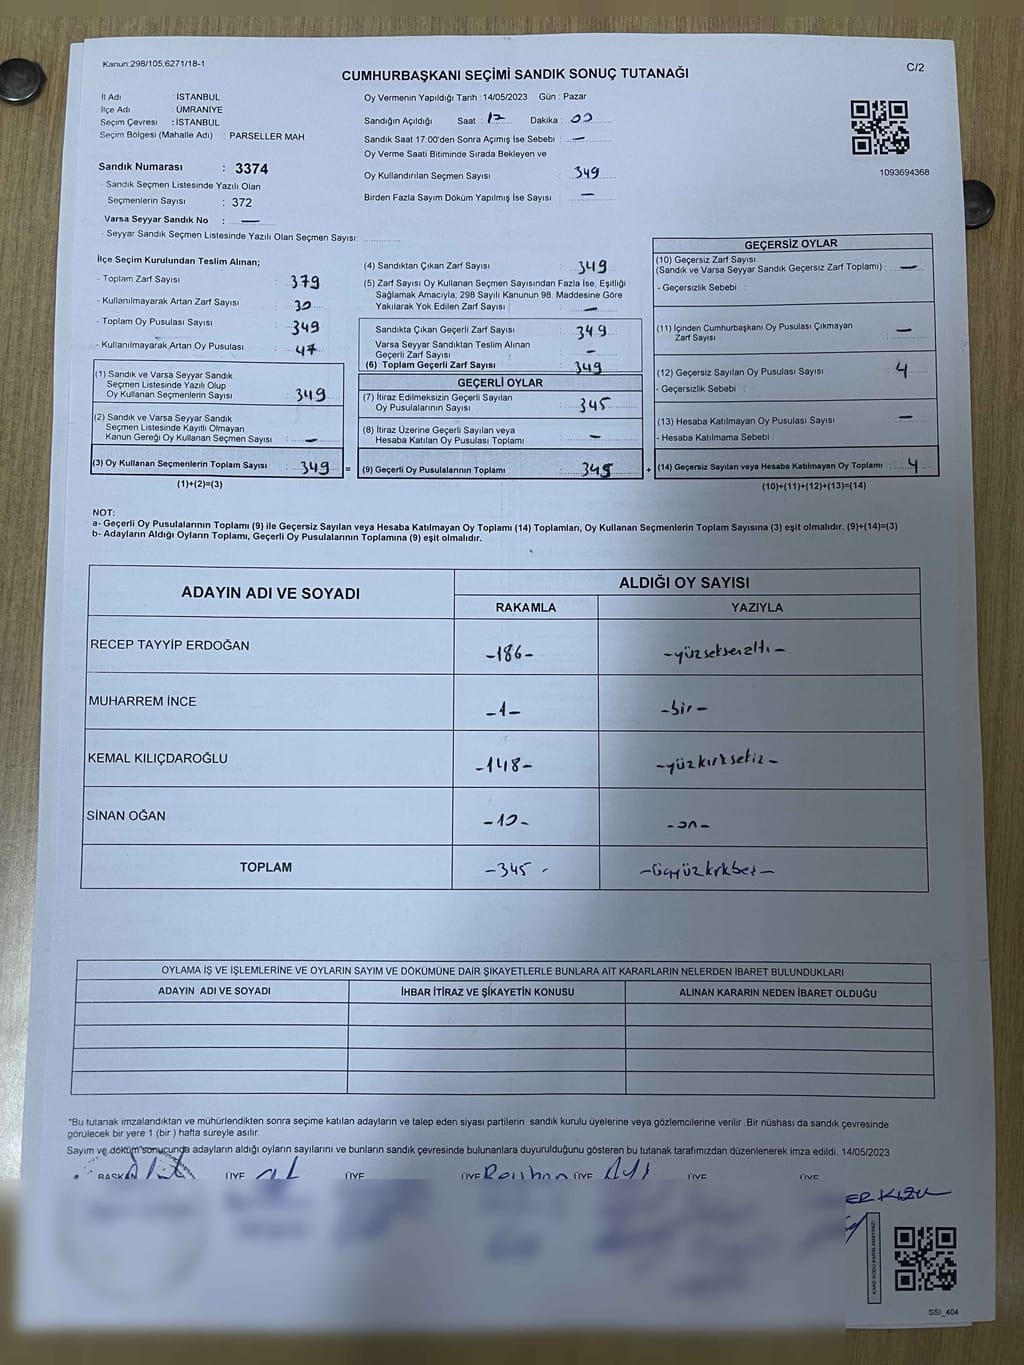 Kanun:298/105,6271/18-1
CUMHURBAŞKANI SEÇİMİ SANDIK SONUÇ TUTANAĞI
C/2
İl Adı : İSTANBUL
İlçe Adı : ÜMRANİYE
Seçim Çevresi : İSTANBUL
Seçim Bölgesi (Mahalle Adı) : PARSELLER MAH.
Sandık Numarası : 3374
- Sandık Seçmen Listesinde Yazılı Olan
Seçmenlerin Sayısı : 372
Varsa Seyyar Sandık No : —
- Seyyar Sandık Seçmen Listesinde Yazılı Olan Seçmen Sayısı:
Oy Vermenin Yapıldığı Tarih : 14/05/2023 Gün : Pazar
Sandığın Açıldığı Saat : 17 Dakika : 00
Sandık Saat 17:00'den Sonra Açımış İse Sebebi : —
Oy Verme Saati Bitiminde Sırada Bekleyen ve
Oy Kullandırılan Seçmen Sayısı : 349
Birden Fazla Sayım Döküm Yapılmış İse Sayısı : —
1093694368
İlçe Seçim Kurulundan Teslim Alınan;
- Toplam Zarf Sayısı : 379
- Kullanılmayarak Artan Zarf Sayısı : 30
- Toplam Oy Pusulası Sayısı : 349
- Kullanılmayarak Artan Oy Pusulası : 47
(1) Sandık ve Varsa Seyyar Sandık
Seçmen Listesinde Yazılı Olup
Oy Kullanan Seçmenlerin Sayısı : 349
(2) Sandık ve Varsa Seyyar Sandık
Seçmen Listesinde Kayıtlı Olmayan
Kanun Gereği Oy Kullanan Seçmen Sayısı : —
(3) Oy Kullanan Seçmenlerin Toplam Sayısı : 349 =
(1)+(2)=(3)
(4) Sandıktan Çıkan Zarf Sayısı : 349
(5) Zarf Sayısı Oy Kullanan Seçmen Sayısından Fazla İse, Eşitliği
Sağlamak Amacıyla; 298 Sayılı Kanunun 98. Maddesine Göre
Yakılarak Yok Edilen Zarf Sayısı : —
Sandıkta Çıkan Geçerli Zarf Sayısı : 349
Varsa Seyyar Sandıktan Teslim Alınan
Geçerli Zarf Sayısı : —
(6) Toplam Geçerli Zarf Sayısı : 349
GEÇERLİ OYLAR
(7) İtiraz Edilmeksizin Geçerli Sayılan
Oy Pusulalarının Sayısı : 345
(8) İtiraz Üzerine Geçerli Sayılan veya
Hesaba Katılan Oy Pusulası Toplamı : —
(9) Geçerli Oy Pusulalarının Toplamı : 345 +
GEÇERSİZ OYLAR
(10) Geçersiz Zarf Sayısı
(Sandık ve Varsa Seyyar Sandık Geçersiz Zarf Toplamı) : —
- Geçersizlik Sebebi :
(11) İçinden Cumhurbaşkanı Oy Pusulası Çıkmayan
Zarf Sayısı : —
(12) Geçersiz Sayılan Oy Pusulası Sayısı : 4
- Geçersizlik Sebebi :
(13) Hesaba Katılmayan Oy Pusulası Sayısı : —
- Hesaba Katılmama Sebebi :
(14) Geçersiz Sayılan veya Hesaba Katılmayan Oy Toplamı : 4
(10)+(11)+(12)+(13)=(14)
NOT:
a- Geçerli Oy Pusulalarının Toplamı (9) ile Geçersiz Sayılan veya Hesaba Katılmayan Oy Toplamı (14) Toplamları, Oy Kullanan Seçmenlerin Toplam Sayısına (3) eşit olmalıdır. (9)+(14)=(3)
b- Adayların Aldığı Oyların Toplamı, Geçerli Oy Pusulalarının Toplamına (9) eşit olmalıdır.
ADAYIN ADI VE SOYADI
ALDIĞI OY SAYISI
RAKAMLA YAZIYLA
RECEP TAYYİP ERDOĞAN -186- -yüzseksenaltı-
MUHARREM İNCE -1- -bir-
KEMAL KILIÇDAROĞLU -148- -yüzkırksekiz-
SİNAN OĞAN -10- -on-
TOPLAM -345- -üçyüzkırkbeş-
OYLAMA İŞ VE İŞLEMLERİNE VE OYLARIN SAYIM VE DÖKÜMÜNE DAİR ŞİKAYETLERLE BUNLARA AİT KARARLARIN NELERDEN İBARET BULUNDUKLARI
ADAYIN ADI VE SOYADI İHBAR İTİRAZ VE ŞİKAYETİN KONUSU ALINAN KARARIN NEDEN İBARET OLDUĞU
*Bu tutanak imzalandıktan ve mühürlendikten sonra seçime katılan adayların ve talep eden siyasi partilerin sandık kurulu üyelerine veya gözlemcilerine verilir .Bir nüshası da sandık çevresinde
görülecek bir yere 1 (bir ) hafta süreyle asılır.
Sayım ve döküm sonucunda adayların aldığı oyların sayılarını ve bunların sandık çevresinde bulunanlara duyurulduğunu gösteren bu tutanak tarafımızdan düzenlenerek imza edildi. 14/05/2023
BAŞKAN ÜYE ÜYE ÜYE Reyhan ÜYE ÜYE ÜYE
KARE KODU KARALAMAYINIZ!
SSI_404